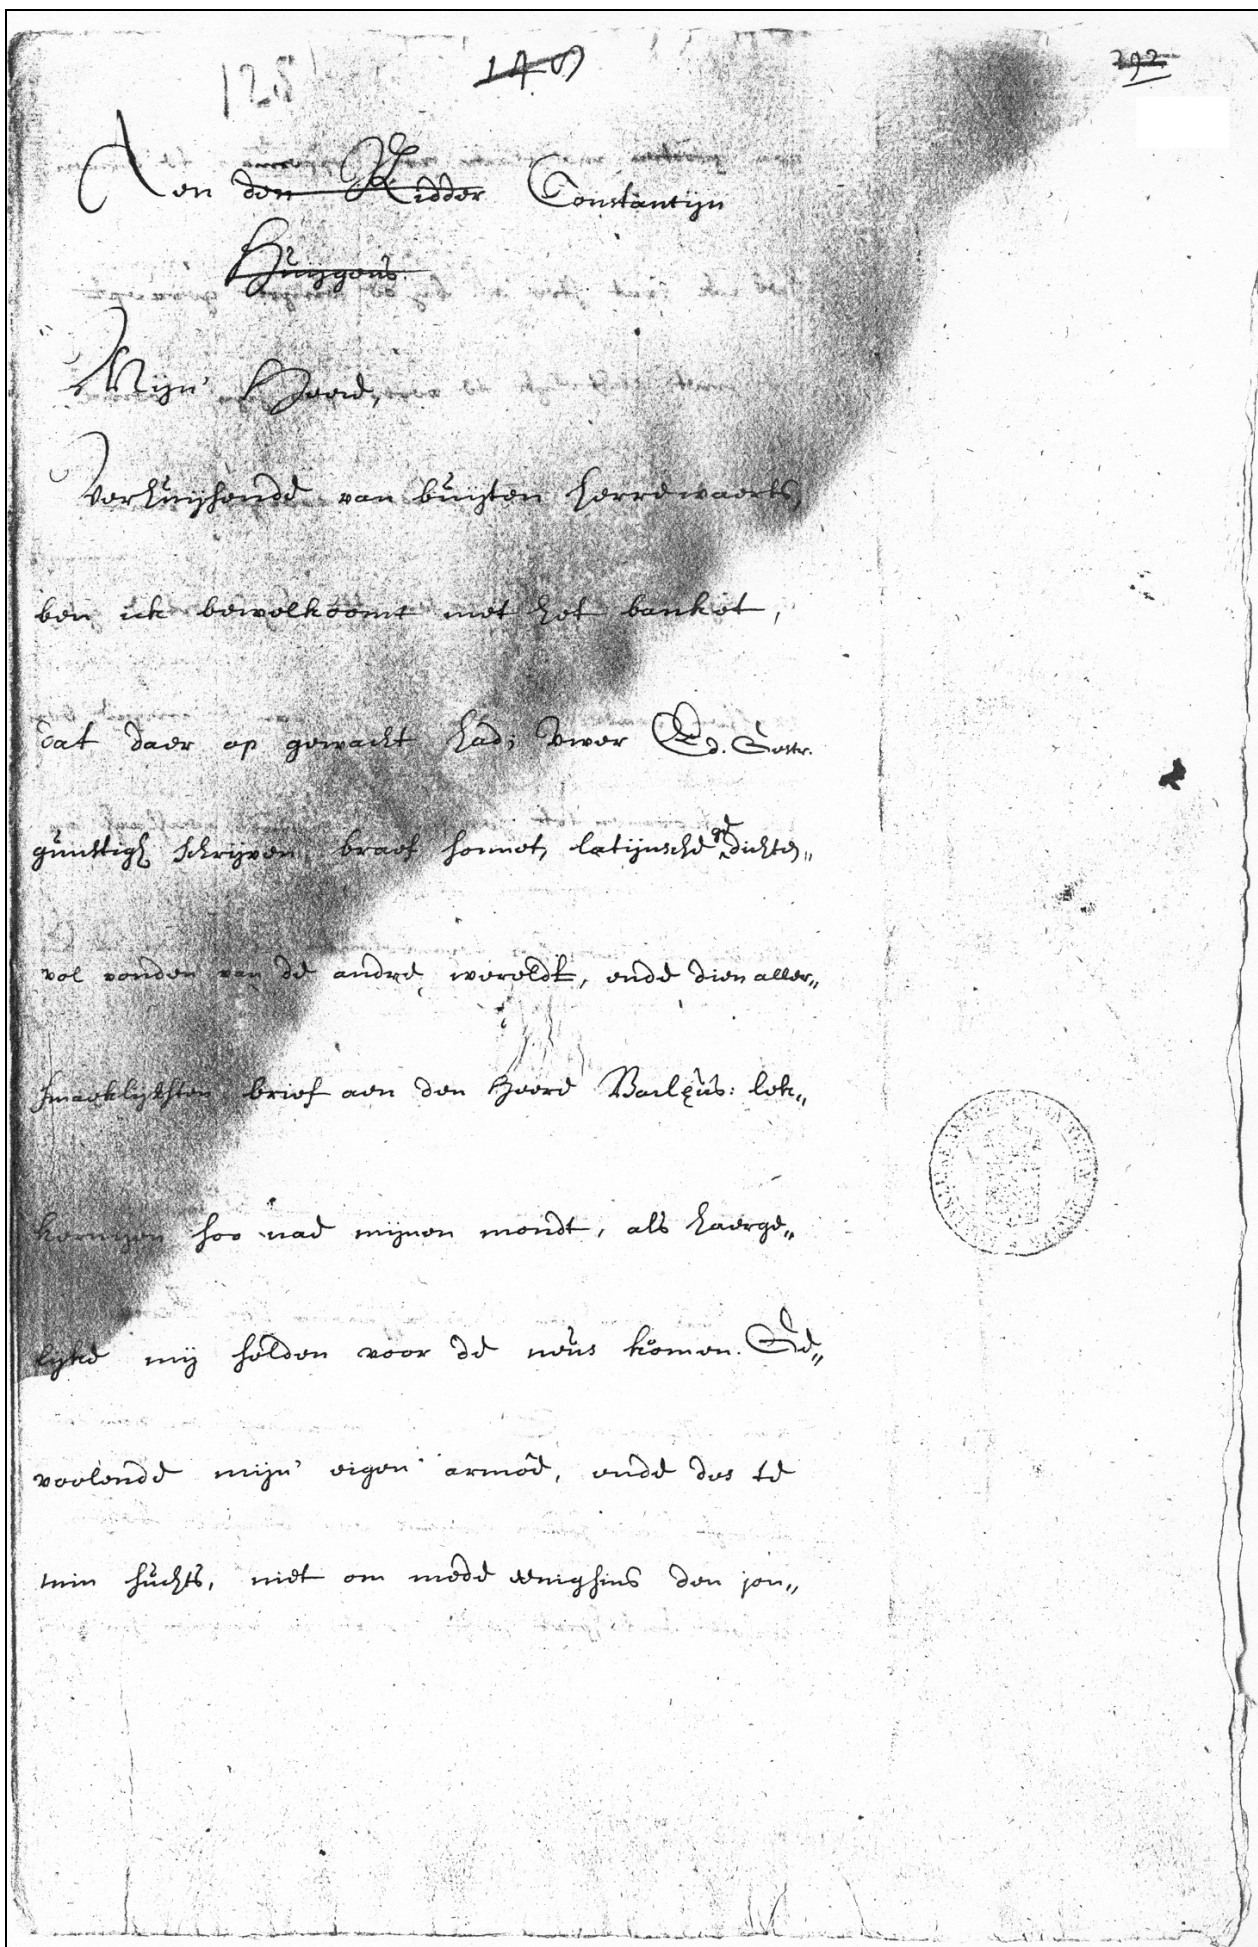 128 149 292
Aen den Ridder Constantijn
Huijgens.
Mijn Heere,
Verhuijsende van buijten herrewaerts,
ben ick bewelkoomt met het banket,
dat daer op gewacht had; Uwer Ed. Gestr.
gunstigh schrijven, braef sonnet, latijnsche gedichten
vol vonden van de andre wereldt, ende dien aller„
smaeklijksten brief aen den Heere Barlęus: lek„
kernijen soo nae mijnen mondt, als haerge„
lijke mij selden voor de neus komen. Ge„
voelende mijn eigen armoe, ende des te
min suchts, niet om mede eenighsins den jon„